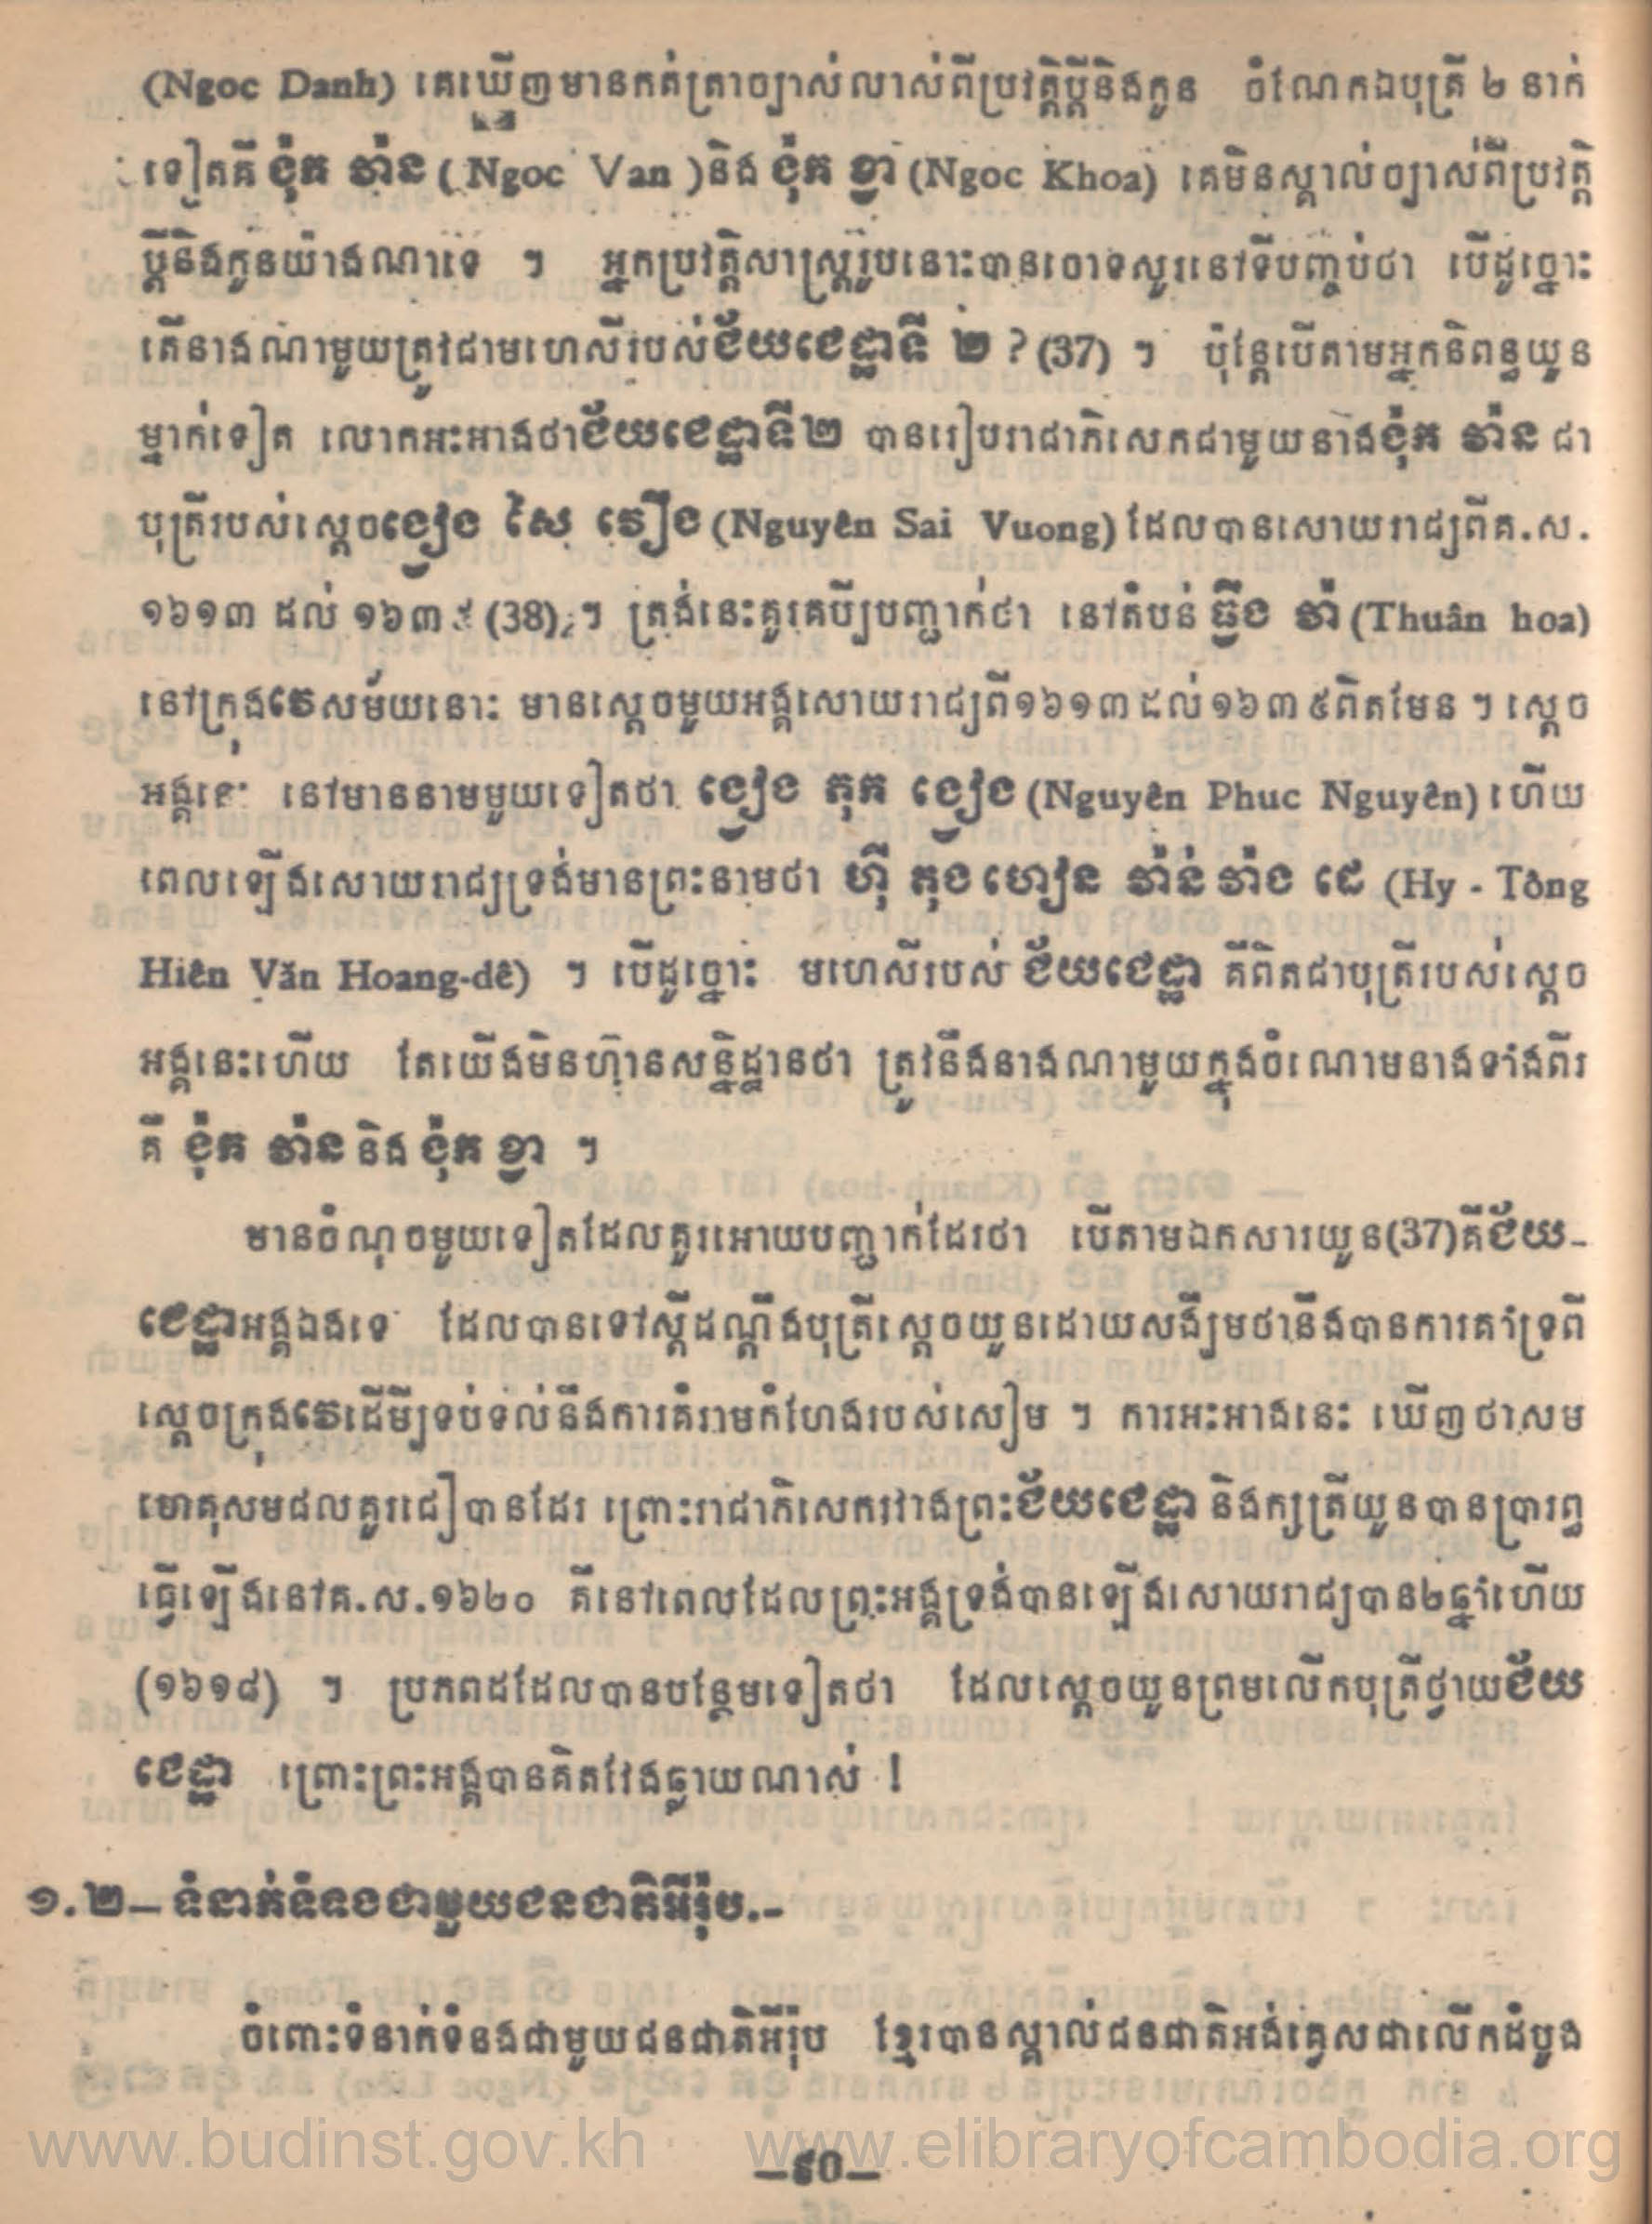 (Ngoc Danh) គេឃើញមានកត់ត្រាច្បាស់លាស់ពីប្រវត្តិប្តីនិងកូន ចំណែកឯបុត្រី ២ នាក់
ទៀតគឺ ង៉ុក វ៉ាន (Ngoc Van )និង ង៉ុក ខ្វា (Ngoc Khoa) គេមិនស្គាល់ច្បាស់ពីប្រវត្តិ
ប្តីនិងកូនយ៉ាងណាទេ ។ អ្នកប្រវត្តិសាស្ត្ររូបនោះបានចោទសួរនៅទីបញ្ចប់ថា បើដូច្នោះ
តើនាងណាមួយត្រូវជាមហេសីរបស់ជ័យជេដ្ឋាទី ២ ? (37) ។ ប៉ុន្តែបើតាមអ្នកនិពន្ធយួន
ម្នាក់ទៀត លោកអះអាងថាជ័យជេដ្ឋាទី២ បានរៀបរាជាភិសេកជាមួយនាងង៉ុក វ៉ាន ជា
បុត្រីរបស់ស្តេចងៀង សៃ វឿង (Nguyên Sai Vuong) ដែលបានសោយរាជ្យពីគ.ស.
១៦១៣ ដល់ ១៦៣៥ (38) ។ ត្រង់នេះគួរគប្បីបញ្ជាក់ថា នៅតំបន់ ធ្វឹង វ៉ា (Thuân hoa)
នៅក្រុងវេសម័យនោះ មានស្តេចមួយអង្គសោយរាជ្យពី១៦១៣ដល់១៦៣៥ពិតមែន ។ ស្តេច
អង្គនេះ នៅមាននាមមួយទៀតថា ងៀង ភុក ងៀង (Nguyên Phuc Nguyên) ហើយ
ពេលឡើងសោយរាជ្យទ្រង់មានព្រះនាមថា ហ៊ី តុង ហៀន វ៉ាន់ វ៉ាង ដេ (Hy - Tông
Hiên Văn Hoang-dê) ។ បើដូច្នោះ មហេសីរបស់ ជ័យជេដ្ឋា គឺពិតជាបុត្រីរបស់ស្តេច
អង្គនេះហើយ តែយើងមិនហ៊ានសន្និដ្ឋានថា ត្រូវនឹងនាងណាមួយក្នុងចំណោមនាងទាំងពីរ
គឺ ង៉ុក វ៉ាន និង ង៉ុក ខ្វា ។
មានចំណុចមួយទៀតដែលគួរអោយបញ្ជាក់ដែរថា បើតាមឯកសារយួន(37)គឺជ័យ-
ជេដ្ឋាអង្គឯងទេ ដែលបានទៅស្តីដណ្តឹងបុត្រីស្តេចយួនដោយសង្ឃឹមថានឹងបានការគាំទ្រពី
ស្តេចក្រុងវេដើម្បីទប់ទល់នឹងការគំរាមកំហែងរបស់សៀម ។ ការអះអាងនេះ ឃើញថាសម
ហេតុសមផលគួរជឿបានដែរ ព្រោះរាជាភិសេករវាងព្រះជ័យជេដ្ឋា និងក្សត្រីយួនបានប្រារព្ធ
ធ្វើឡើងនៅគ.ស.១៦២០ គឺនៅពេលដែលព្រះអង្គទ្រង់បានឡើងសោយរាជ្យបាន២ឆ្នាំហើយ
(១៦១៨) ។ ប្រភពដដែលបានបន្ថែមទៀតថា ដែលស្តេចយួនព្រមលើកបុត្រីថ្វាយជ័យ
ជេដ្ឋា ព្រោះព្រះអង្គបានគិតវែងឆ្ងាយណាស់ !
១.២— ទំនាក់ទំនងជាមួយជនជាតិអឺរ៉ុប.-
ចំពោះទំនាក់ទំនងជាមួយជនជាតិអឺរ៉ុប ខ្មែរបានស្គាល់ជនជាតិអង់គ្លេសជាលើកដំបូង
www.budinst.gov.kh www.elibraryofcambodia.org
—៩០—